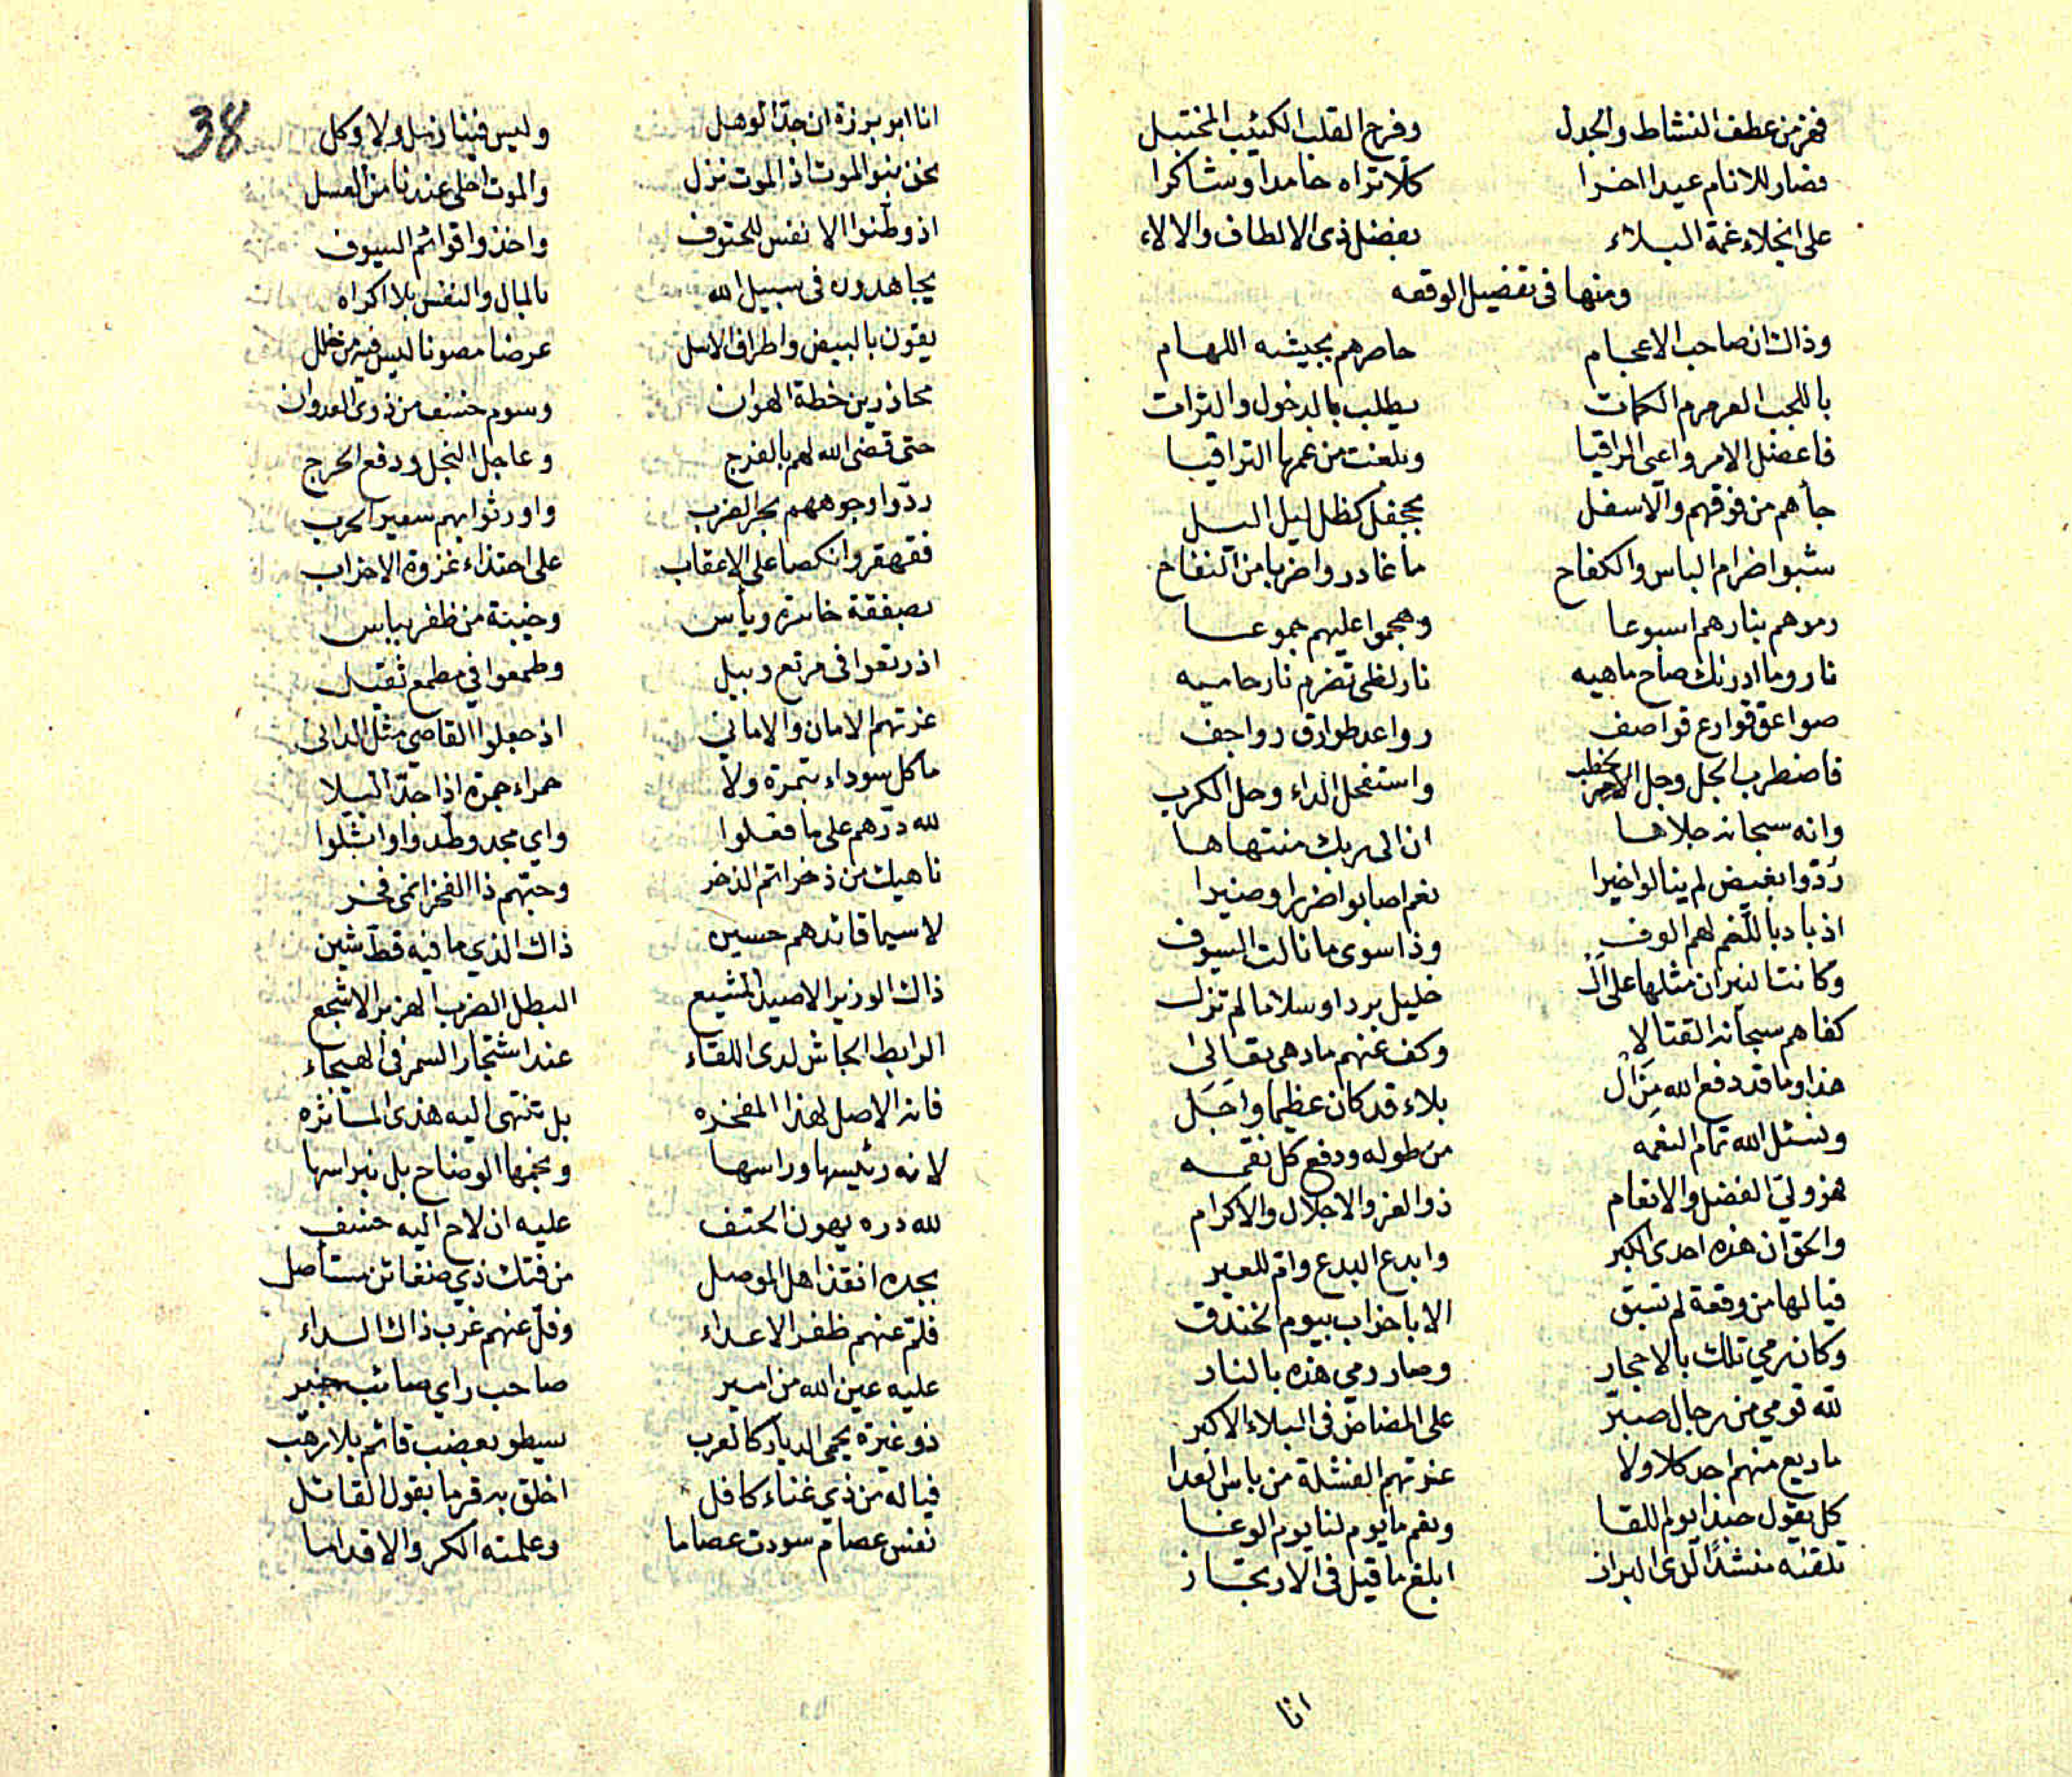 فهز من عطف النشاط والجدل وفرح القلب الكئيب المختبل
فصار للانام عيدا اخرا كلا تراه حامدا وشاكرا
على انجلاء غمة البلاء بفضل ذى الالطاف والالاء
ومنها فى تفضيل الوقعه
وذاك ان صاحب الاعجام حاصرهم بجيشه اللهام
باللجب العرمرم الكمات يطلب بالدخول والترات
فاعضل الامر واعى الراقيا وبلغت من غمها التراقيا
جأهم من فوقهم والاسفل بجحفل كظل ليل اليل
شبوا ضرام الباس والكفاح ما غادروا ضربا من النفاح
رموهم بنارهم اسبوعا وهجموا عليهم جموعا
نار وما ادرنك صاح ماهيه نار لظى تضرم نار حاميه
صواعق قوارع قواصف رواعد طوارق رواجف
فاضطرب الجل وجل الخطب واستفحل الداء وحل الكرب
وانه سبحانه جلاها ان الى ربك منتهاها
ردّوا بغيض لم ينالوا خيرا نعم اصابوا ضررا وضيرا
اذ باد باللغم لهم الوف وذا سوى ما نالت السيوف
وكانت النيران مثلها على ال خليل بردا وسلاما لم تزل
كفاهم سبحانه القتالا وكف عنهم مادهى تعالى
هذا وما قد دفع الله مِنَ ال بلاء قد كان عظيما واجَل
ونسئل الله تمام النعمه من طوله ودفع كل نقمه
هو ولى الفضل والانعام ذو العز والاجلال والاكرام
والحق ان هذه احدى الكبر وابدع البدع وام للعبر
فيا لها من وقعة لم تسبق الا باحزاب بيوم الخندق
وكان رمي تلك بالاحجار وصار رمي هذه بالنار
لله قومي من رجال صبر على المضاض فى البلاء الاكبر
ما ريع منهم احد كلا ولا عزتهم الفشلة من باس العدا
كل يقول حبذا يوم اللقا ونعم ما يوم لنا يوم الوغا
تلقنه منشدًا لدى البراز ابلغ ما قيل فى الارتجاز
انا
38
انا ابو برزة ان جدّ الوهل وليس فينا زمل ولا وكل
نحن بنو الموت اذ الموت نزل والموت احلى عندنا من العسل
اذ وطّنوا الانفس للحتوف واخذوا قوائم السيوف
يجاهدون فى سبيل الله بالمال والنفس بلا اكراه
يقون بالبيض واطراف الاسل عرضا مصونا ليس فيه من خلل
محاذرين خطة الهوان وسوم خسف من ذوى العدوان
حتى قضى الله لهم بالفرج وعاجل النجل ودفع الحرج
ردّوا وجوههم بحر الضرب واورثوا بهم سعير الحرب
فقهقروا نكصا على الاعقاب على احتذاء غزوة الاحزاب
بصفقة خاسرة ويأس وخيبة من ظفر بباس
اذ رتعوا فى مرتع وبيل وطمعوا في مطمع ثقيل
غرتهم الامان والاماني اذ جعلوا القاصي مثل الدانى
ما كل سوداء بتمرة ولا حمراء جمرة اذا جدّ البلا
لله درّهم على ما فعلوا واي مجد وطّدوا واثّلوا
ناهيك من ذخر اتم الذخر وحبّهم ذا الفخر انمى فخر
لا سيما قائدهم حسين ذاك الذي ما فيه قطّ شين
ذاك الوزير الاصيد المشيع البطل الضرب الهزبر الاشجع
الرابط الجاش لدى اللقاء عند اشتجار السمر فى الهيجاء
فانه الاصل لهذا المفخره بل تنتهى اليه هذى المأثره
لانه رئيسها وراسها ونجمها الوضاح بل نبراسها
لله دره يهون الحتف عليه ان لاح اليه خسف
بجده انقذ اهل الموصل من فتك ذي ضغائن مستأصل
فلّم عنهم ظفر الاعداء وفلّ عنهم غرب ذاك الداء
عليه عين الله من امير صاحب راي صائب خبير
ذو غيرة يحمى الديار كالعرب يسطو بعضب قائم بلا رهب
فياله من ذي غناء كافل اخلق به قرما بقول القائل
نفس عصام سودت عصاما وعلمته الكر والاقداما